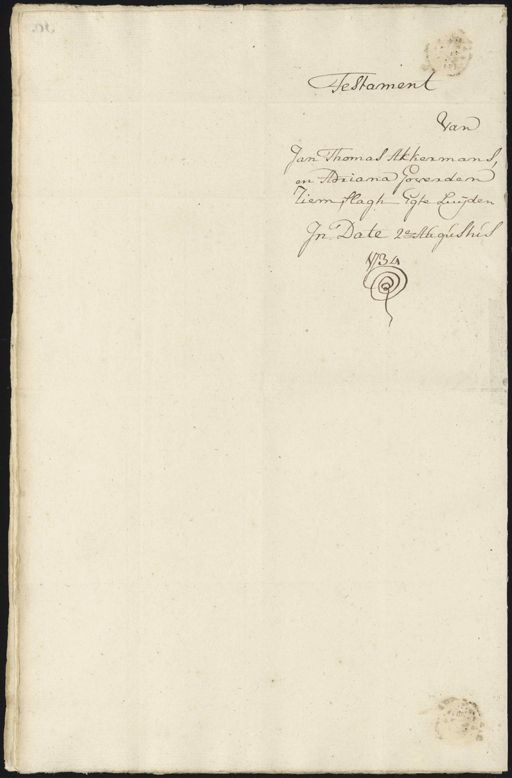 Testament
Van
Jan Thomas Akkermans,
en Adriana Goverden
Ziemflagh Egte Luijden
In Date 2e Augustus
1734